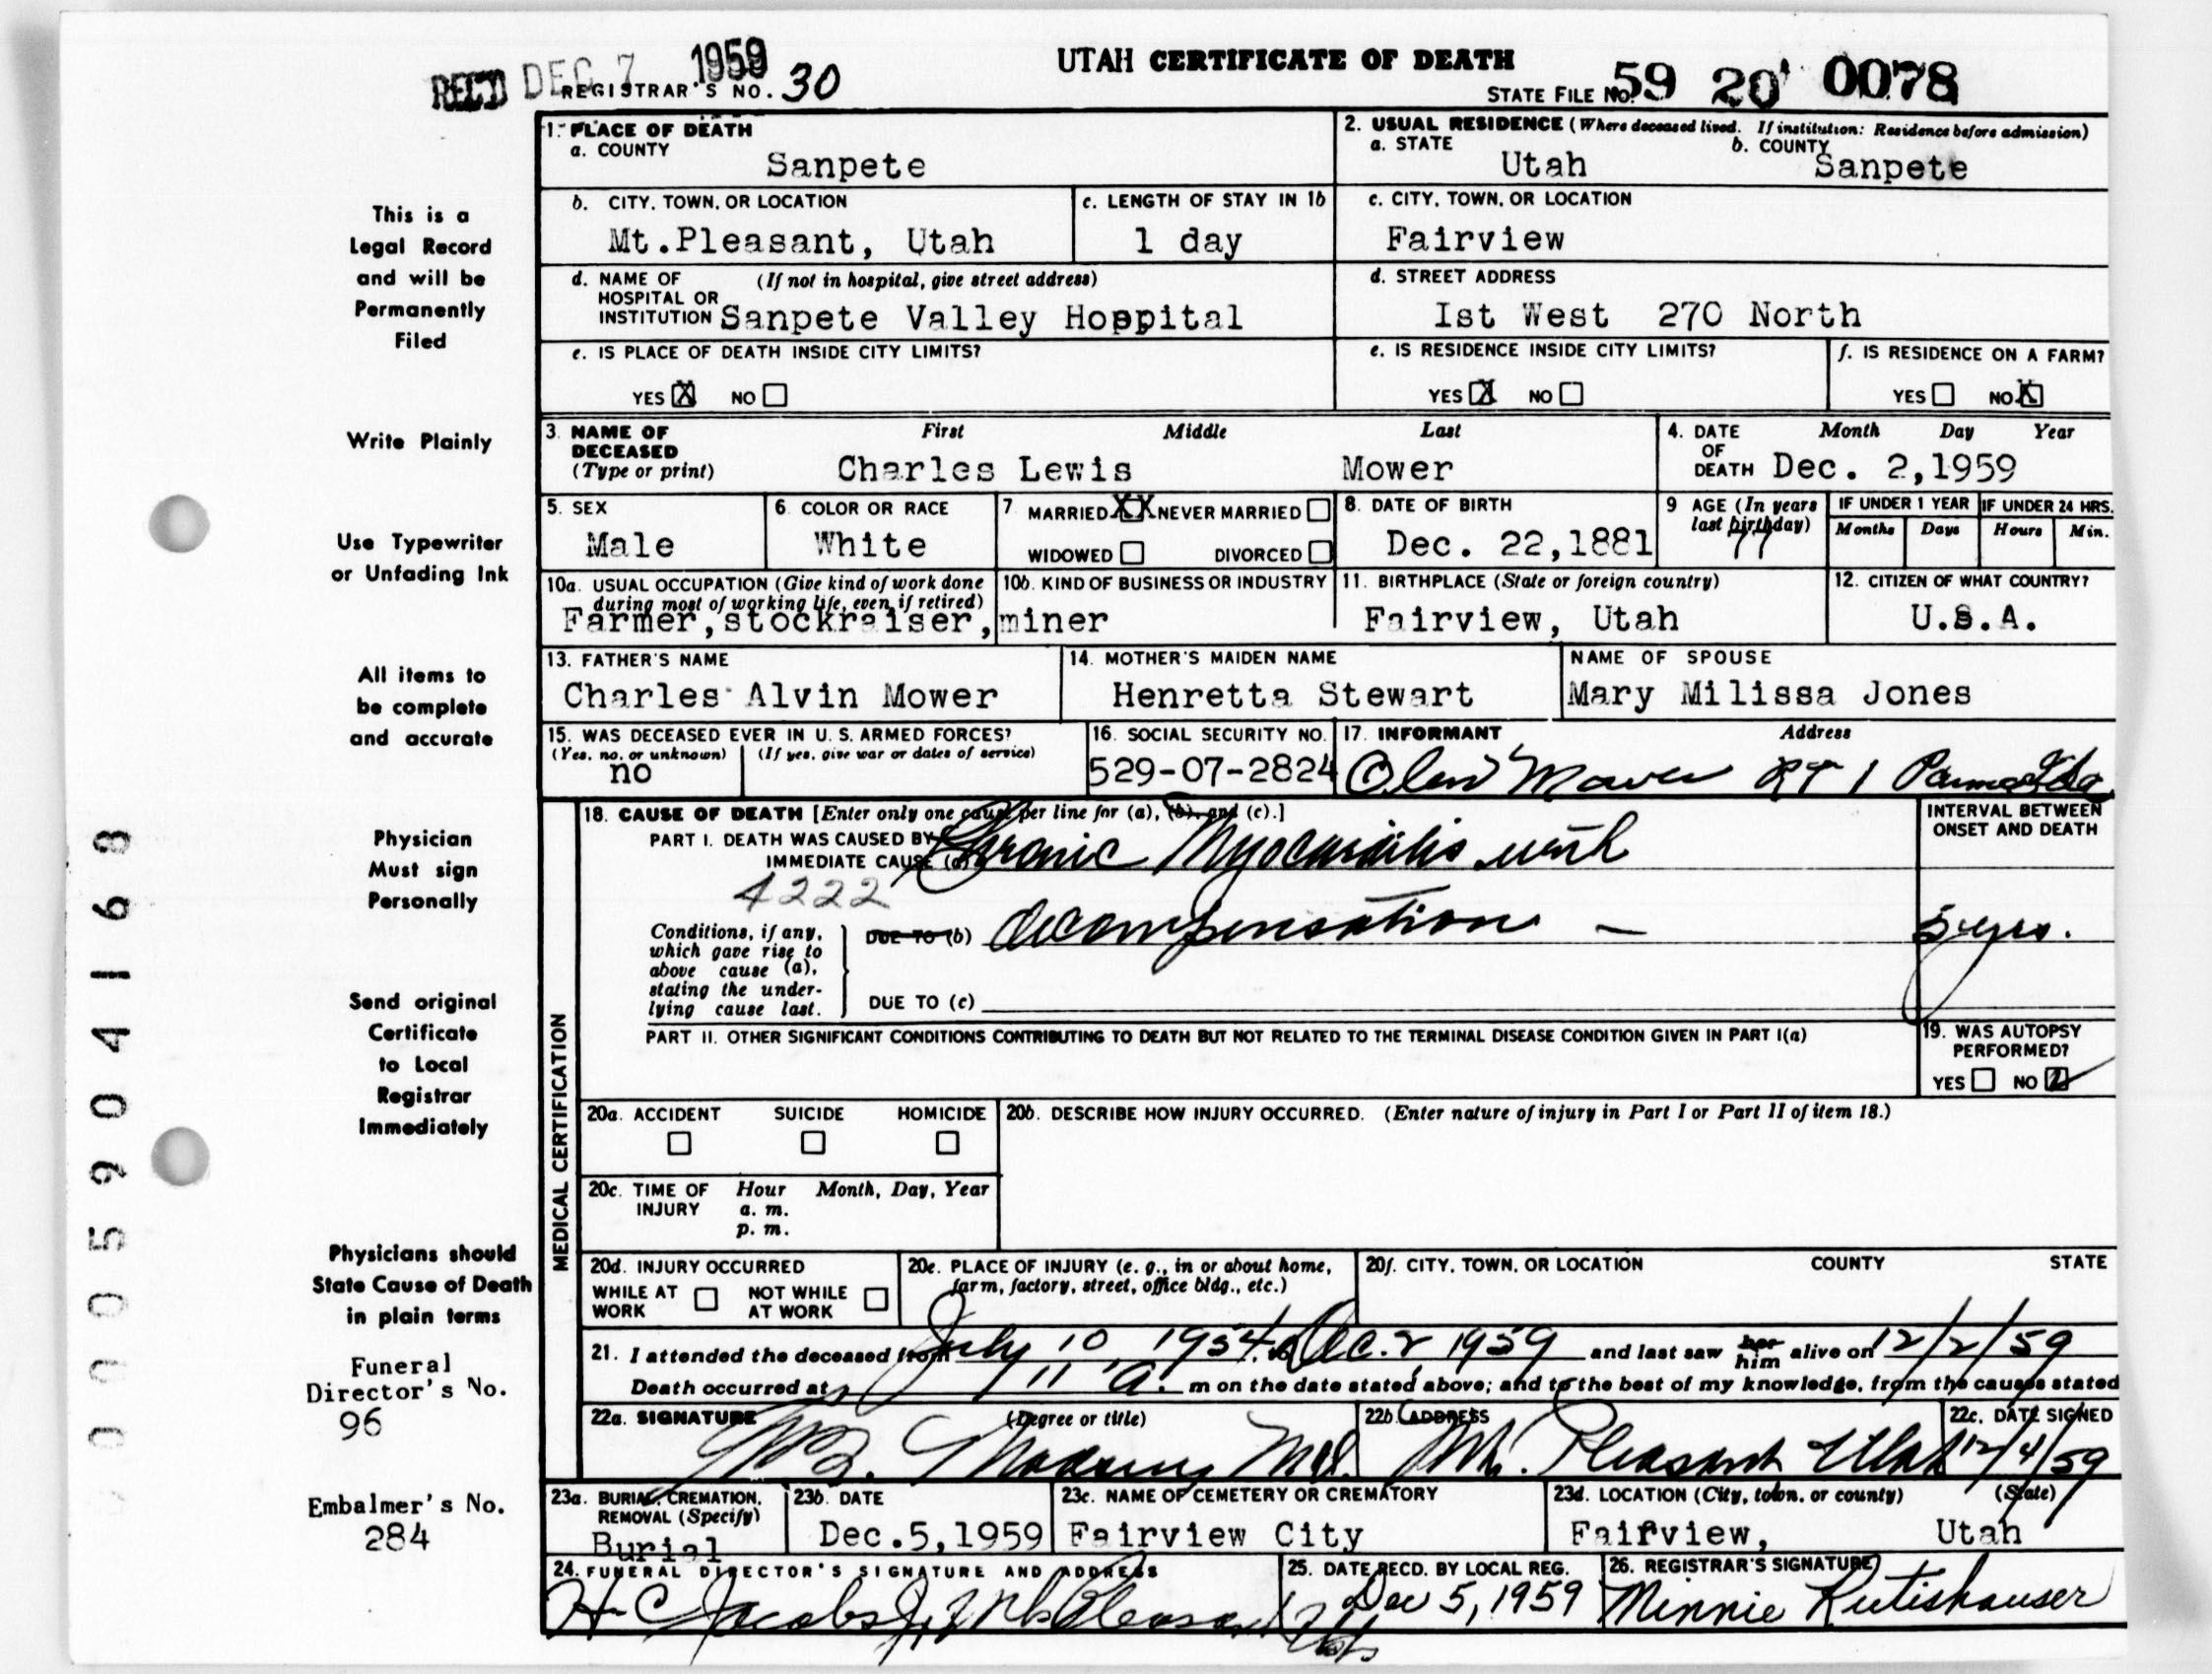 REC'D DEC 7 1959
UTAH CERTIFICATE OF DEATH
REGISTRAR'S NO. 30
STATE FILE NO. 59 20 0078
1. PLACE OF DEATH
a. COUNTY
Sanpete
2. USUAL RESIDENCE (Where deceased lived. If institution: Residence before admission)
a. STATE
Utah
b. COUNTY
Sanpete
b. CITY, TOWN, OR LOCATION
Mt.Pleasant, Utah
c. LENGTH OF STAY IN 1b
1 day
c. CITY, TOWN, OR LOCATION
Fairview
d. NAME OF HOSPITAL OR INSTITUTION (If not in hospital, give street address)
Sanpete Valley Hospital
d. STREET ADDRESS
Ist West 270 North
e. IS PLACE OF DEATH INSIDE CITY LIMITS?
YES X NO
e. IS RESIDENCE INSIDE CITY LIMITS?
YES X NO
f. IS RESIDENCE ON A FARM?
YES NO X
3. NAME OF DECEASED (Type or print)
First Middle Last
Charles Lewis Mower
4. DATE OF DEATH
Month Day Year
Dec. 2,1959
5. SEX
Male
6. COLOR OR RACE
White
7. MARRIED XX NEVER MARRIED
WIDOWED DIVORCED
8. DATE OF BIRTH
Dec. 22,1881
9 AGE (In years last birthday)
77
IF UNDER 1 YEAR
Months Days
IF UNDER 24 HRS.
Hours Min.
10a. USUAL OCCUPATION (Give kind of work done during most of working life, even if retired)
10b. KIND OF BUSINESS OR INDUSTRY
Farmer,stockraiser,miner
11. BIRTHPLACE (State or foreign country)
Fairview, Utah
12. CITIZEN OF WHAT COUNTRY?
U.S.A.
13. FATHER'S NAME
Charles Alvin Mower
14. MOTHER'S MAIDEN NAME
Henretta Stewart
NAME OF SPOUSE
Mary Milissa Jones
15. WAS DECEASED EVER IN U. S. ARMED FORCES?
(Yes, no, or unknown) (If yes, give war or dates of service)
no
16. SOCIAL SECURITY NO.
529-07-2824
17. INFORMANT Address
Mower RT 1 Parma Ida
MEDICAL CERTIFICATION
18. CAUSE OF DEATH [Enter only one cause per line for (a), (b), and (c).]
PART I. DEATH WAS CAUSED BY:
IMMEDIATE CAUSE (a) Chronic Myocarditis with
4222
Conditions, if any, which gave rise to above cause (a), stating the underlying cause last.
DUE TO (b) decompensation —
DUE TO (c)
INTERVAL BETWEEN ONSET AND DEATH
5 yrs.
PART II. OTHER SIGNIFICANT CONDITIONS CONTRIBUTING TO DEATH BUT NOT RELATED TO THE TERMINAL DISEASE CONDITION GIVEN IN PART I(a)
19. WAS AUTOPSY PERFORMED?
YES NO
20a. ACCIDENT SUICIDE HOMICIDE
20b. DESCRIBE HOW INJURY OCCURRED. (Enter nature of injury in Part I or Part II of item 18.)
20c. TIME OF INJURY Hour Month, Day, Year
a. m.
p. m.
20d. INJURY OCCURRED
WHILE AT WORK NOT WHILE AT WORK
20e. PLACE OF INJURY (e. g., in or about home, farm, factory, street, office bldg., etc.)
20f. CITY, TOWN, OR LOCATION COUNTY STATE
21. I attended the deceased from July 10, 1954 to Dec. 2 1959 and last saw her him alive on 12/2/59
Death occurred at 11 A. m on the date stated above; and to the best of my knowledge, from the causes stated
22a. SIGNATURE (Degree or title)
M.D.
22b. ADDRESS
Mt. Pleasant Utah
22c. DATE SIGNED
12/4/59
23a. BURIAL, CREMATION, REMOVAL (Specify)
Burial
23b. DATE
Dec.5,1959
23c. NAME OF CEMETERY OR CREMATORY
Fairview City
23d. LOCATION (City, town, or county) (State)
Fairview, Utah
24. FUNERAL DIRECTOR'S SIGNATURE AND ADDRESS
H C Jacobs Jr. Mt Pleasant Utah
25. DATE RECD. BY LOCAL REG.
Dec 5, 1959
26. REGISTRAR'S SIGNATURE
Minnie Rutishauser
This is a
Legal Record
and will be
Permanently
Filed
Write Plainly
Use Typewriter
or Unfading Ink
All items to
be complete
and accurate
Physician
Must sign
Personally
Send original
Certificate
to Local
Registrar
Immediately
Physicians should
State Cause of Death
in plain terms
Funeral
Director's No.
96
Embalmer's No.
284
0005904168